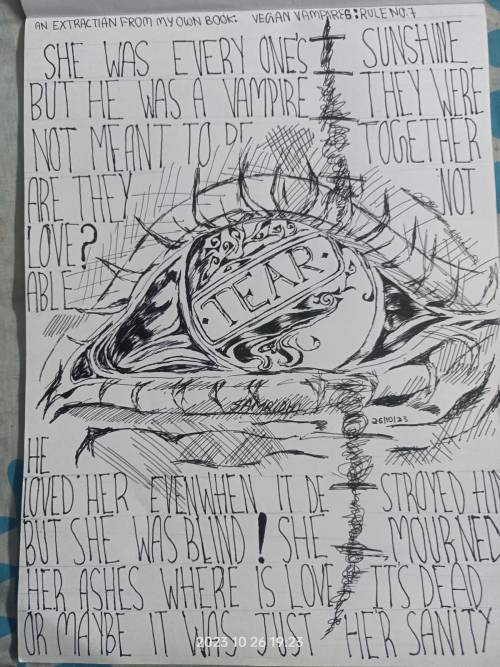 AN EXTRACTIAN FROM MY OWN BOOK: VEGAN VAMPIRES: RULE NO. 7
SHE WAS EVERY ONE'S SUNSHINE
BUT HE WAS A VAMPIRE THEY WERE
NOT MEANT TO BE TOGETHER
ARE THEY NOT
LOVE?
ABLE
TEAR
26/10/23
HE
LOVED HER EVEN WHEN IT DE STROYED HIM
BUT SHE WAS BLIND! SHE MOURNED
HER ASHES WHERE IS LOVE IT'S DEAD
OR MAYBE IT WAS JUST HER SANITY
2023 10 26 19:23